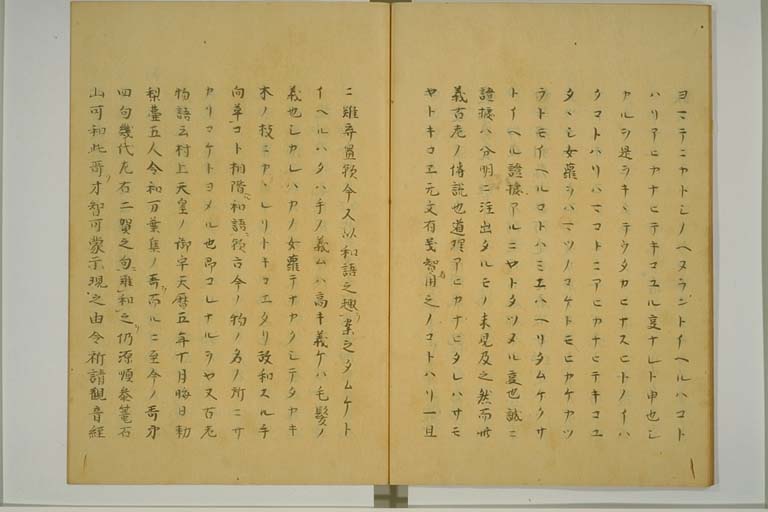 ヨマテニヤトシノヘヌラントイヘルハコト
ハリアヒカナヒテキコユル変ナレト申也シ
カルヲ是ヲキヽテウタカヒナスヒトノイハ
クコトハリハマコトニアヒカナヒテキコエ
タヽシ女蘿ヲハマツノコケトモヒカケカツ
ラトモイヘルコトハミエハヘリタムケクサ
トイヘル證據アルニヤトタツヌル変也誠ニ
證據ハ分明ニ注出タルモノ未見及之然而此
義古老ノ傳説也道理アヒカナヒタレハサモ
ヤトキコエ元文有義者智用之ノコトハリ一旦
ニ雖弃置欤今又以和語之趣案之タムケト
イヘルハタハ手ノ義ムハ高キ義ケハ毛髪ノ
義也シカレハカノ女蘿テナカクシテタカキ
木ノ枝ニカヽレリトキコエタリ故和スル手
向草コト相階和語欤古今ノ物ノ名ノ所ニサ
カリコケトヨメル也即コレナルヲヤ又古老
物語云村上天皇ノ御宇天暦五年十月晦日勅
梨壷五人令和万葉集ノ哥而ルニ至今ノ哥第
四句幾代左右二賀之句難和之仍源順参篭石
山可和此哥才智可蒙示現之由令祈請觀音経